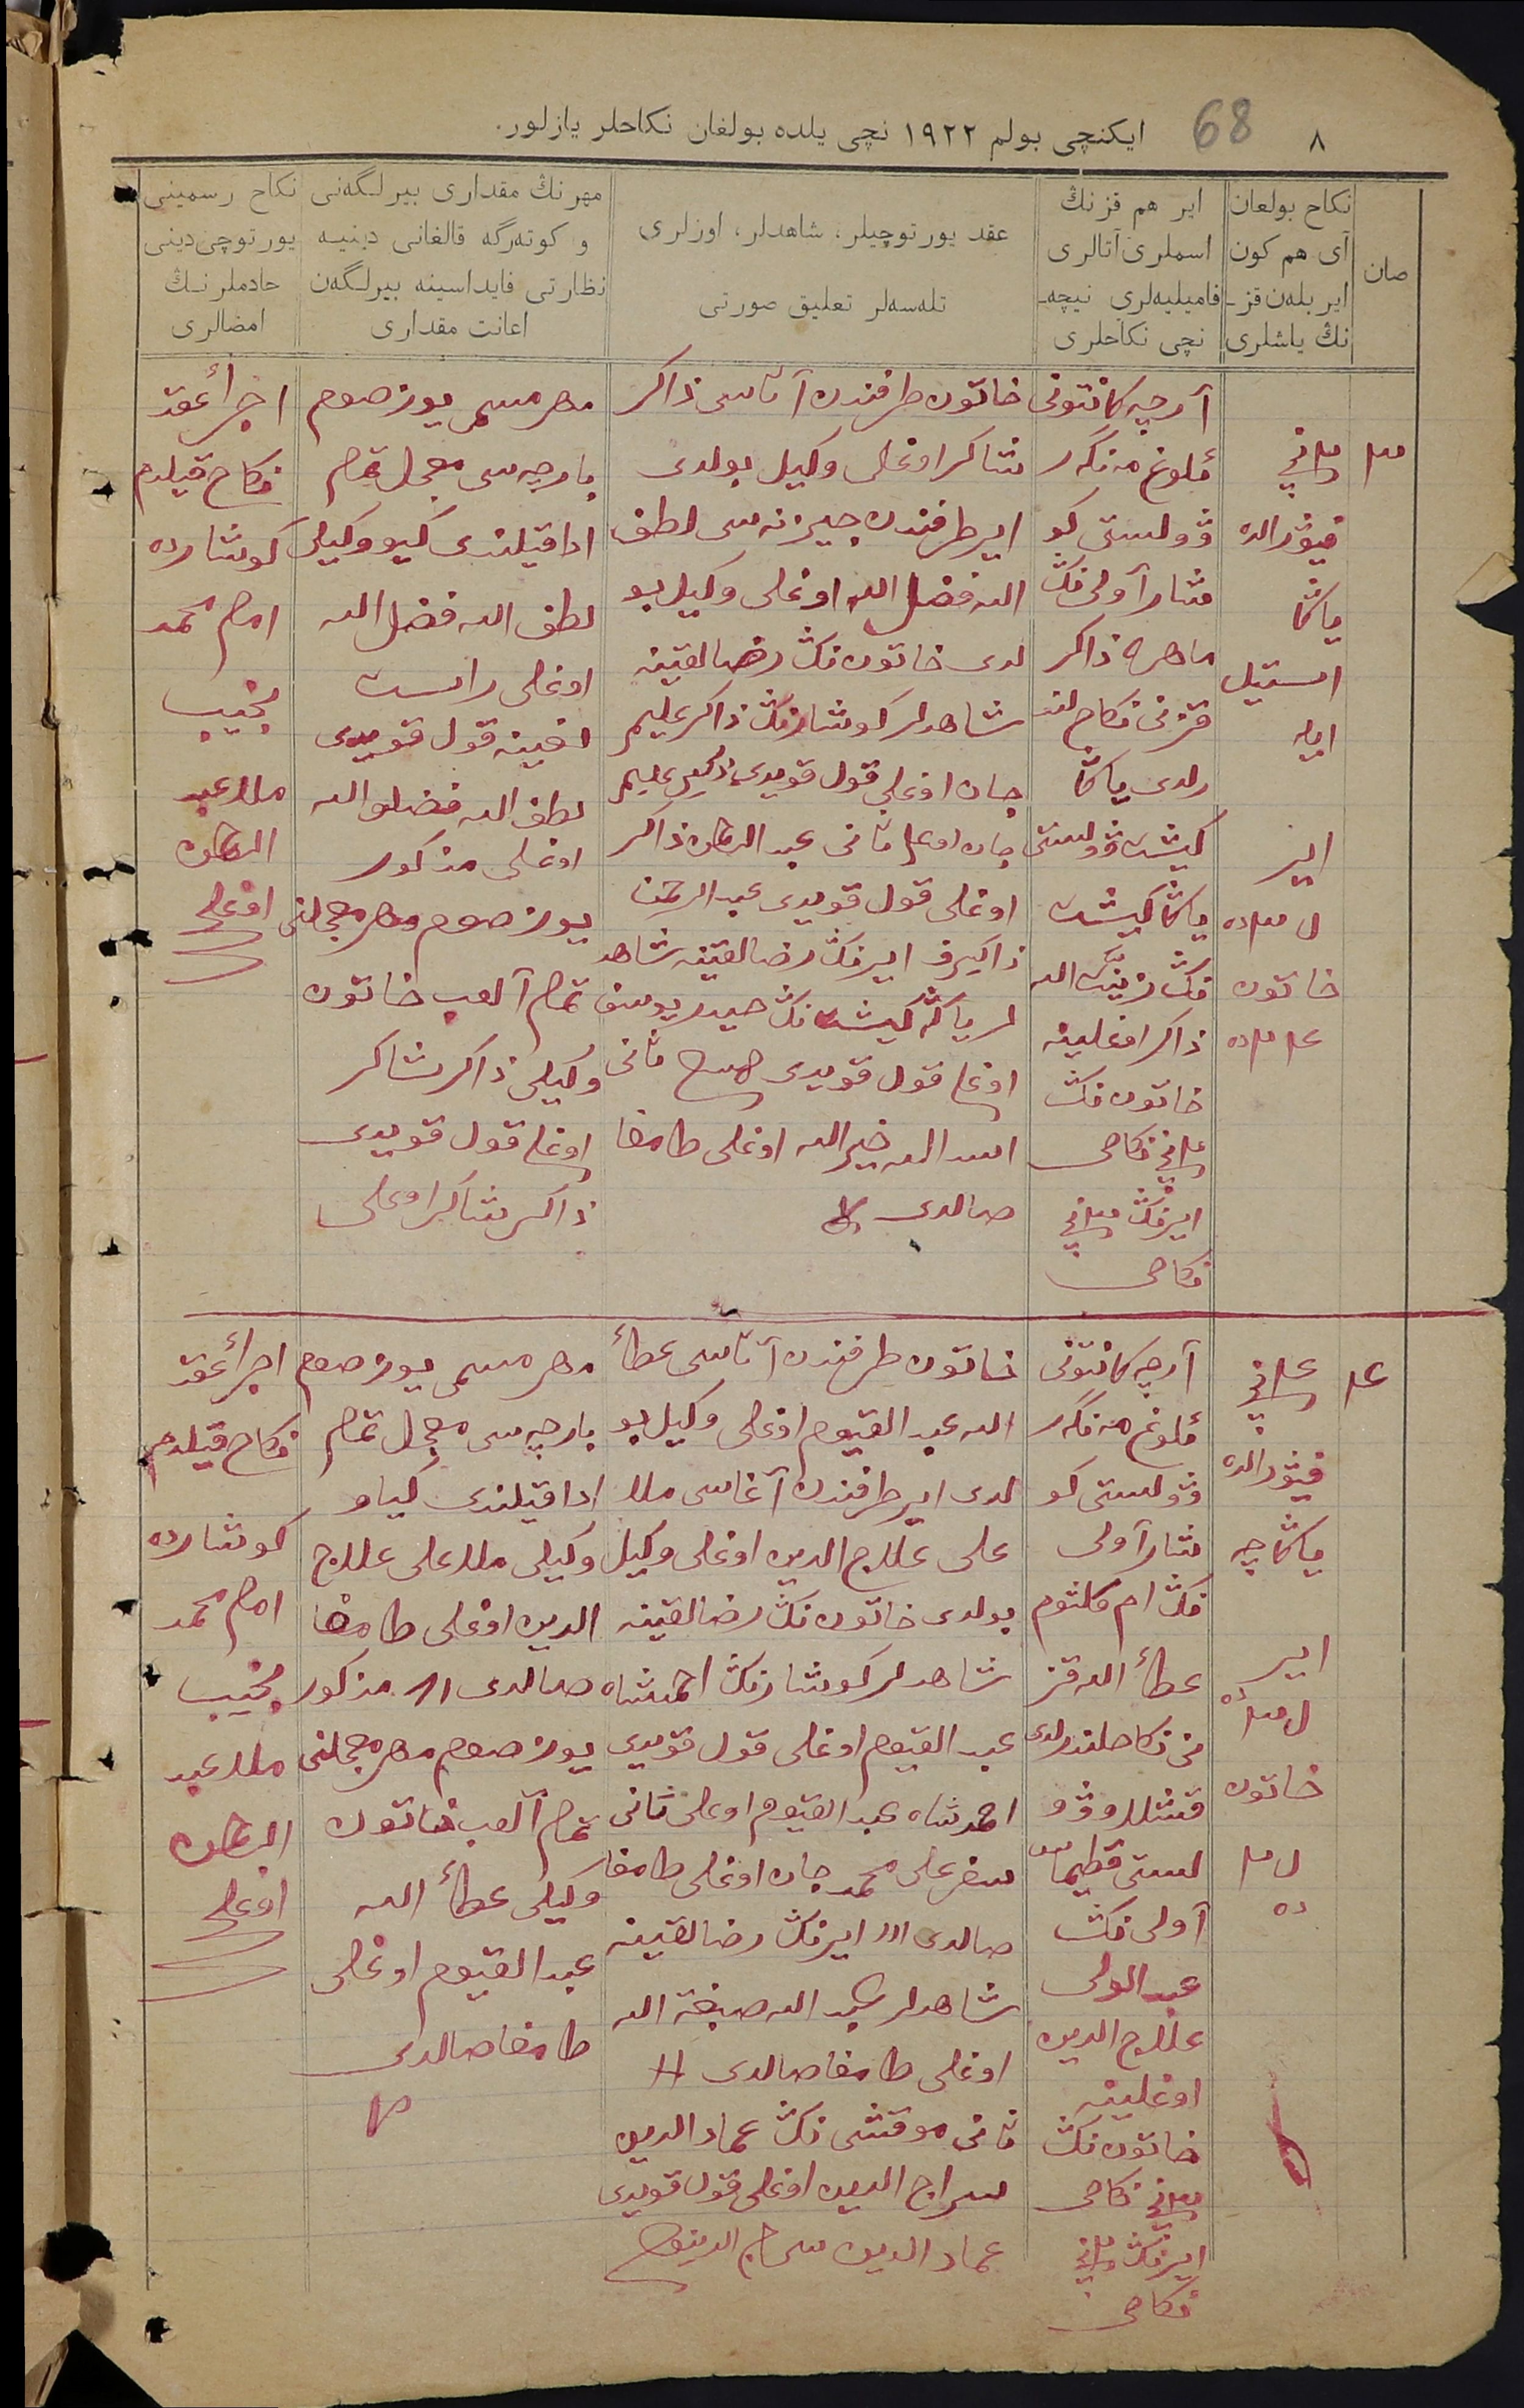 ٨ 68 ایکنچی بولم ١٩٢٢ نچی یلده بولغان نکاحلر یازلور.
صان
نکاح بولعان
آی هم کون
ایر بلەن قز ـ
نڭ یاشلری
ایر هم قز نڭ
اسملری آتالری
فامیلیەلری نیچەـ
نچی نکاحلری
عقد یورتوچیلر، شاهدلر، اوزلری
تلەسەلر تعلیق صورتی
مهرنڭ مقداری بیرلگەنی
و کوتەرگە قالغانی دینیە
نظارتی فایداسینە بیرلگەن
اعانت مقداری
نکاح رسمینی
یورتوچی دینی
خادملرنڭ
امضالری
فیۋرالده
یاڭا
استیل
ایله
ایر
خاتون
آرچە کانتونی
ئلوغ منگر
ۋولستی کو
شار آولی نڭ
ماهره ذاکر
قزنی نکاح لند
ردی یاڭا
کیشت ۋولستی
یاڭا کیشت
نڭ زینت الله
ذاکر اوغلینه
خاتون نڭ
نکاحی
ایرنڭ
نکاحی
خاتون طرفندن آتاسی ذاکر
شاکر اوغلی وکیل بولدی
ایر طرفندن جیزنەسی لطف
الله فضل الله اوغلی وکیل بو
لدی خاتون نڭ رضالقینه
شاهدلر کوشارنڭ ذاکر علیم
جان اوغلی قول قویدی ذاکیر علیم
جان اوغلی ثانی عبد الرحمن ذاکر
اوغلی قول قویدی عبد الرحمن
ذاکیرف ایرنڭ رضالقینه شاهد
لر یاڭا کیشت نڭ حیدر یوسف
اوغلی قول قویدی ثانی
اسد الله خیر الله اوغلی طامغا
صالدی
مهر مسمی یوز صوم
بارچەسی معجل تمام
ادا قیلندی کیو وکیلی
لطف الله فضل الله
اوغلی راست
لغینه قول قویدی
لطف الله فضلو الله
اوغلی مذکور
یوز صوم مهر معجلنی
تمام آلوب خاتون
وکیلی ذاکر شاکر
اوغلی قول قویدی
ذاکر شاکر اوغلی
اجرأ عقد
نکاح قیلدم
کوشارده
امام محمد
نجیب
ملا عبد
الرحمن
اوغلی
فیۋرالده
یاڭاچە
ایر
خاتون
آرچە کانتونی
ئلوغ منگر
ۋولستی کو
شار آولی
نڭ ام کلثوم
عطأ الله قز
نی نکاحلندردی
قشلاو ۋو
لستی
آولی نڭ
عبد الولی
علاج الدین
اوغلینه
خاتون نڭ
نکاحی
ایرنڭ
نکاحی
خاتون طرفندن آتاسی عطأ
الله عبد القیوم اوغلی وکیل بو
لدی ایر طرفندن آغاسی ملا
علی علاج الدین اوغلی وکیل
بولدی خاتون نڭ رضالقینه
شاهدلر کوشارنڭ احمدشاه
عبد القیوم اوغلی قول قویدی
احمدشاه عبد القیوم اوغلی ثانی
سفر علی محمد جان اوغلی طامغا
صالدی III ایرنڭ رضالقینه
شاهدلر عبد الله صبغة الله
اوغلی طامغا صالدی H
ثانی موقشی نڭ عماد الدین
سراج الدین اوغلی قول قویدی
عماد الدین سراج الدینوف
مهر مسمی یوز صوم
بارچەسی معجل تمام
ادا قیلندی کیاو
وکیلی ملا علی علاج
الدین اوغلی طامغا
صالدی مذکور
یوز صوم مهر معجلنی
تمام آلوب خاتون
وکیلی عطأ الله
عبد القیوم اوغلی
طامغا صالدی
اجرأ عقد
نکاح قیلدم
کوشارده
امام محمد
نجیب
ملا عبد
الرحمن
اوغلی